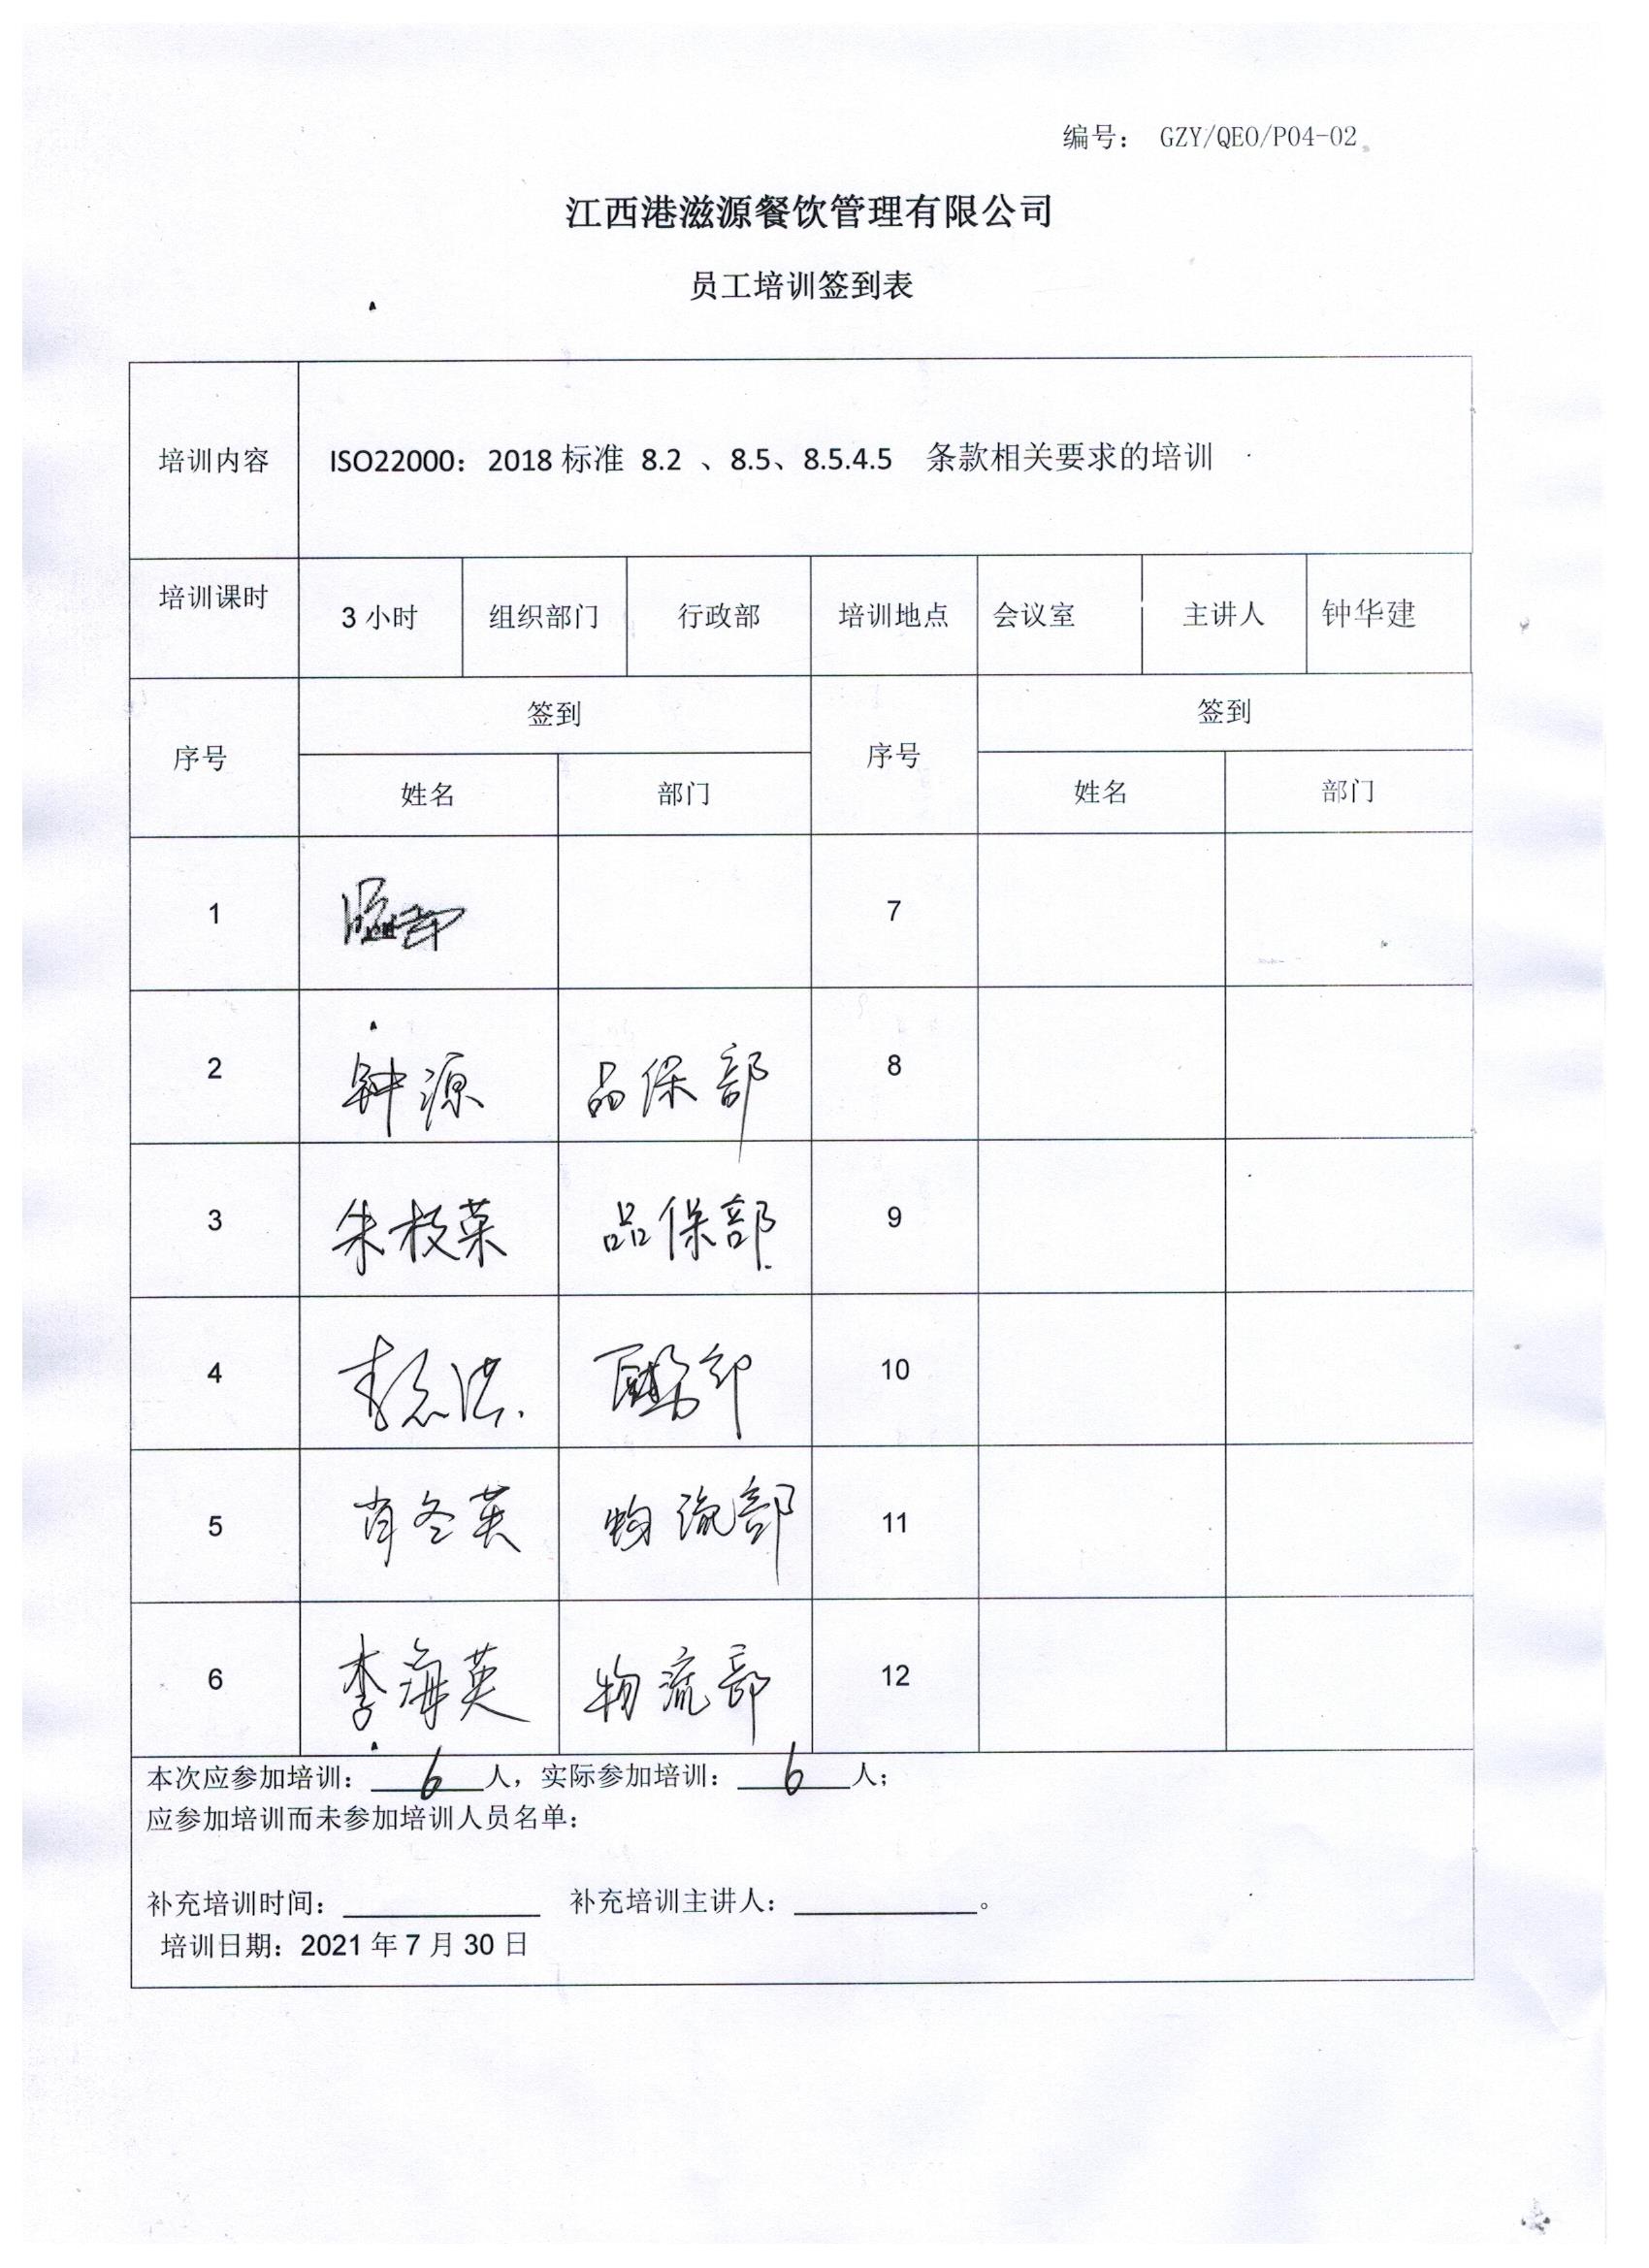 编号： GZY/QEO/P04-02
江西港滋源餐饮管理有限公司
员工培训签到表
培训内容 ISO22000：2018 标准 8.2 、8.5、8.5.4.5 条款相关要求的培训
培训课时 3 小时 组织部门 行政部 培训地点 会议室 主讲人 钟华建
序号 签到 序号 签到
姓名 部门 姓名 部门
1 7
2 钟源 品保部 8
3 朱枝菜 品保部 9
4 李 部 10
5 肖冬英 物流部 11
6 李海英 物流部 12
本次应参加培训：6人，实际参加培训：6人；
应参加培训而未参加培训人员名单：
补充培训时间： 补充培训主讲人： 。
培训日期：2021 年 7 月 30 日